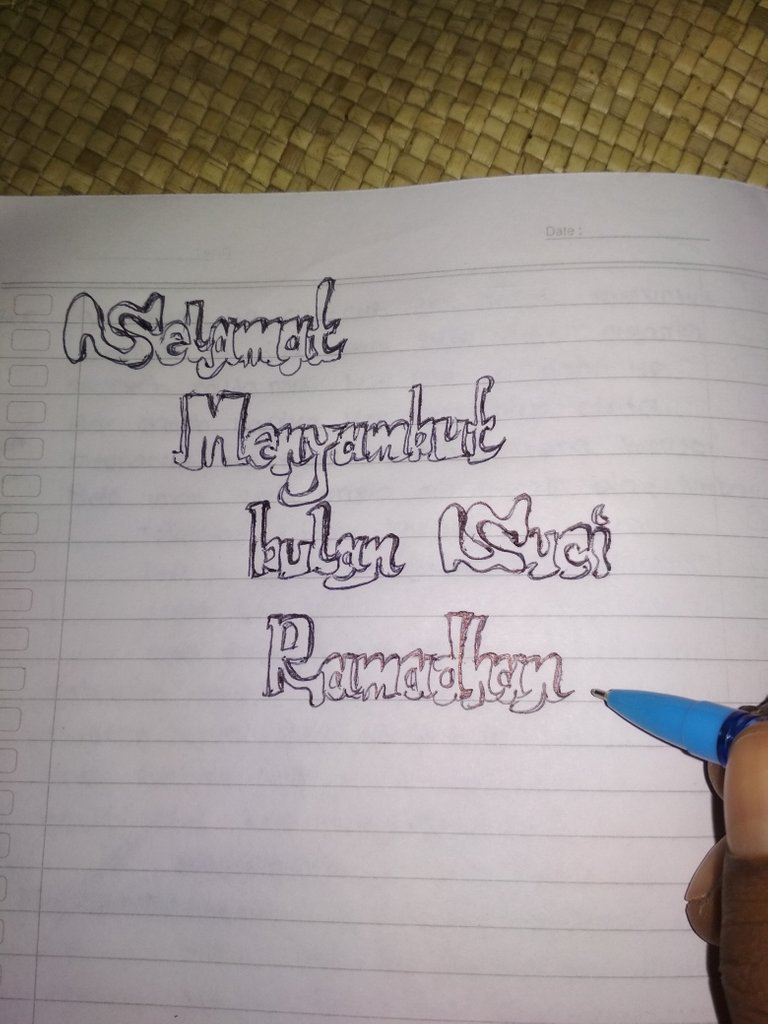 Date :
Selamat
Menyambut
bulan Suci
Ramadhan